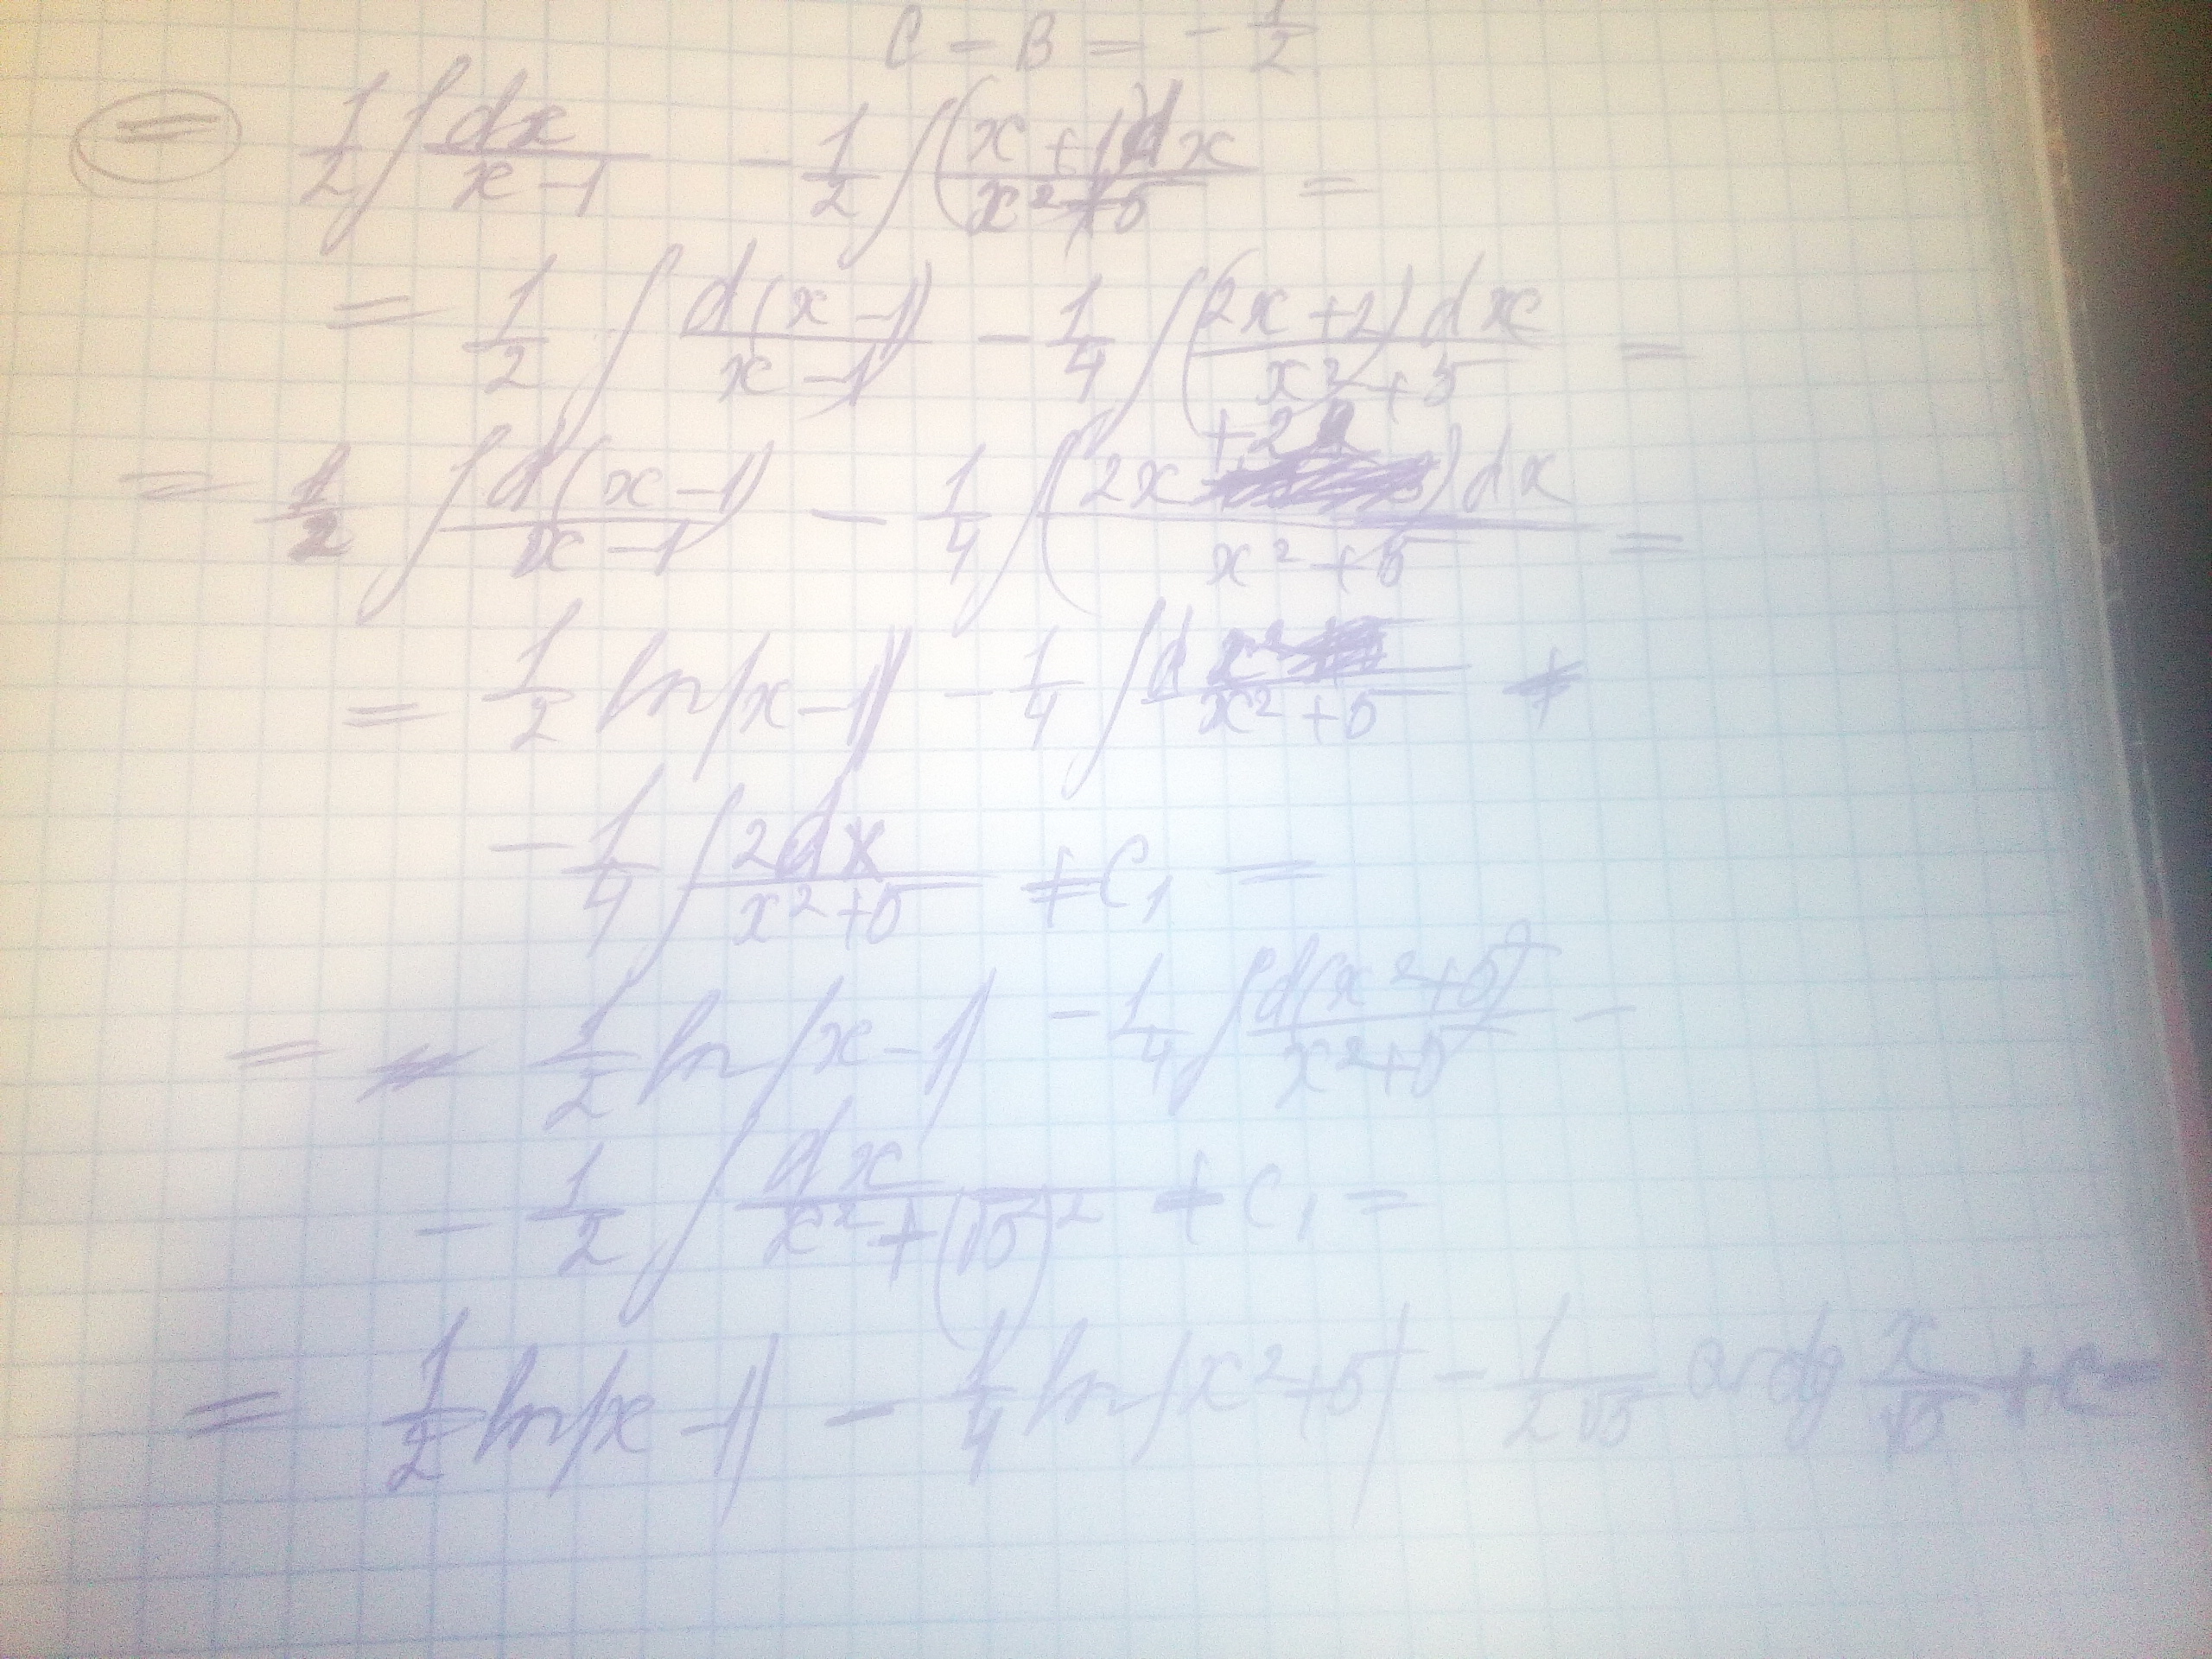 C - B = - 1/2
= 1/2 ∫ dx/(x-1) - 1/2 ∫ (x+1)dx/(x²+5) =
= 1/2 ∫ d(x-1)/(x-1) - 1/4 ∫ (2x+2)dx/(x²+5) =
= 1/2 ∫ d(x-1)/(x-1) - 1/4 ∫ (2x+2)dx/(x²+5) =
= 1/2 ln|x-1| - 1/4 ∫ d x²/(x²+5)
- 1/4 ∫ 2dx/(x²+5) + C₁ =
= 1/2 ln|x-1| - 1/4 ∫ d(x²+5)/(x²+5) -
- 1/2 ∫ dx/(x²+(√5)²) + C₁ =
= 1/2 ln|x-1| - 1/4 ln|x²+5| - 1/(2√5) arctg x/√5 + C